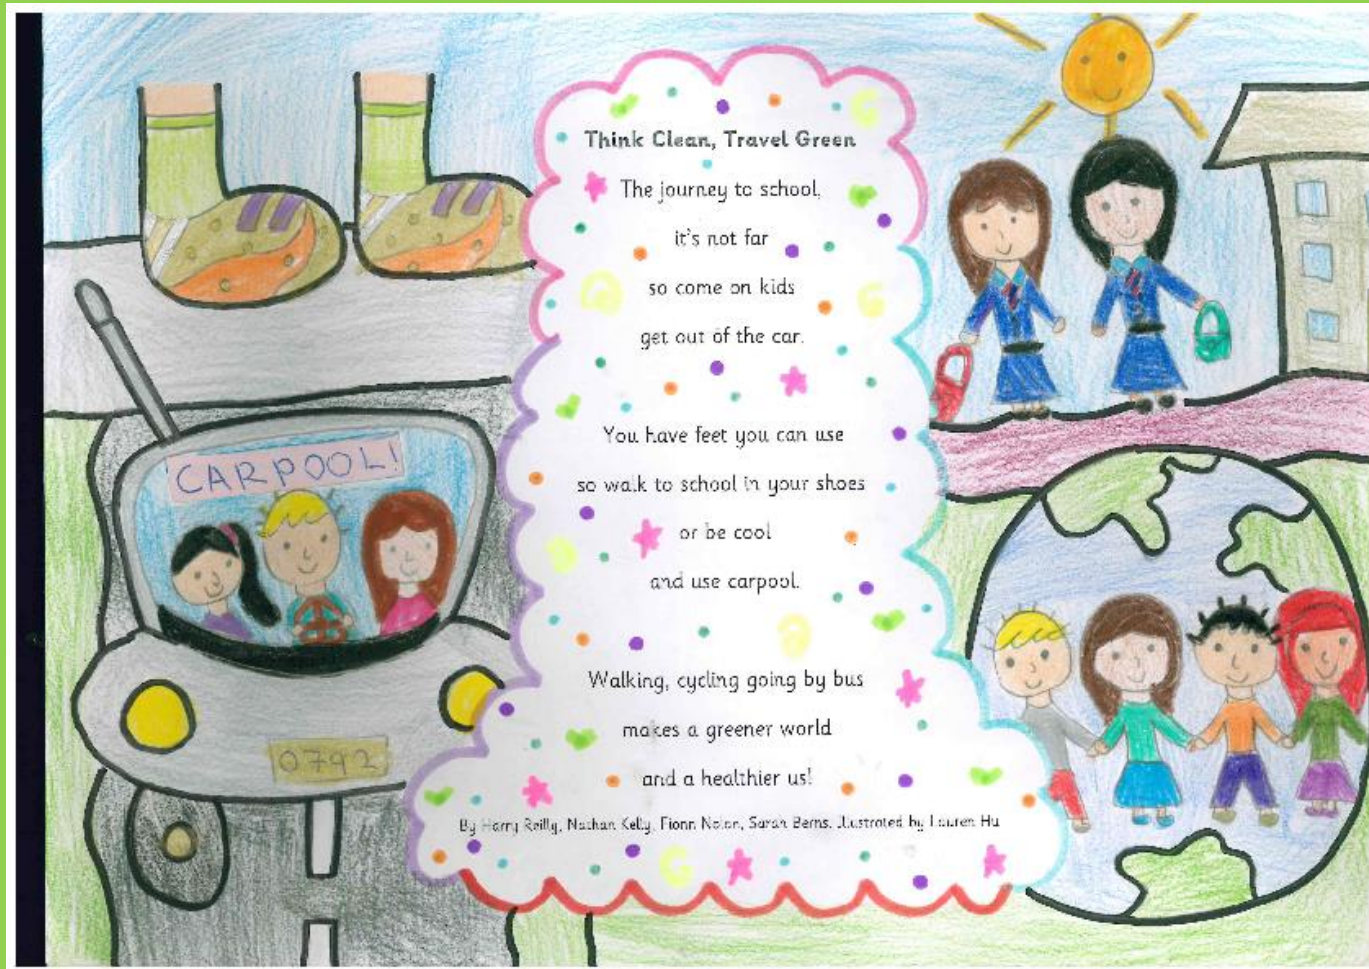 Think Clean, Travel Green
The journey to school,
it's not far
so come on kids
get out of the car.
You have feet you can use
so walk to school in your shoes
or be cool
and use carpool.
Walking, cycling going by bus
makes a greener world
and a healthier us!
By Harry Reilly, Nathan Kelly, Fionn Nolan, Sarah Berns. Illustrated by Lauren Hu
CARPOOL!
0792